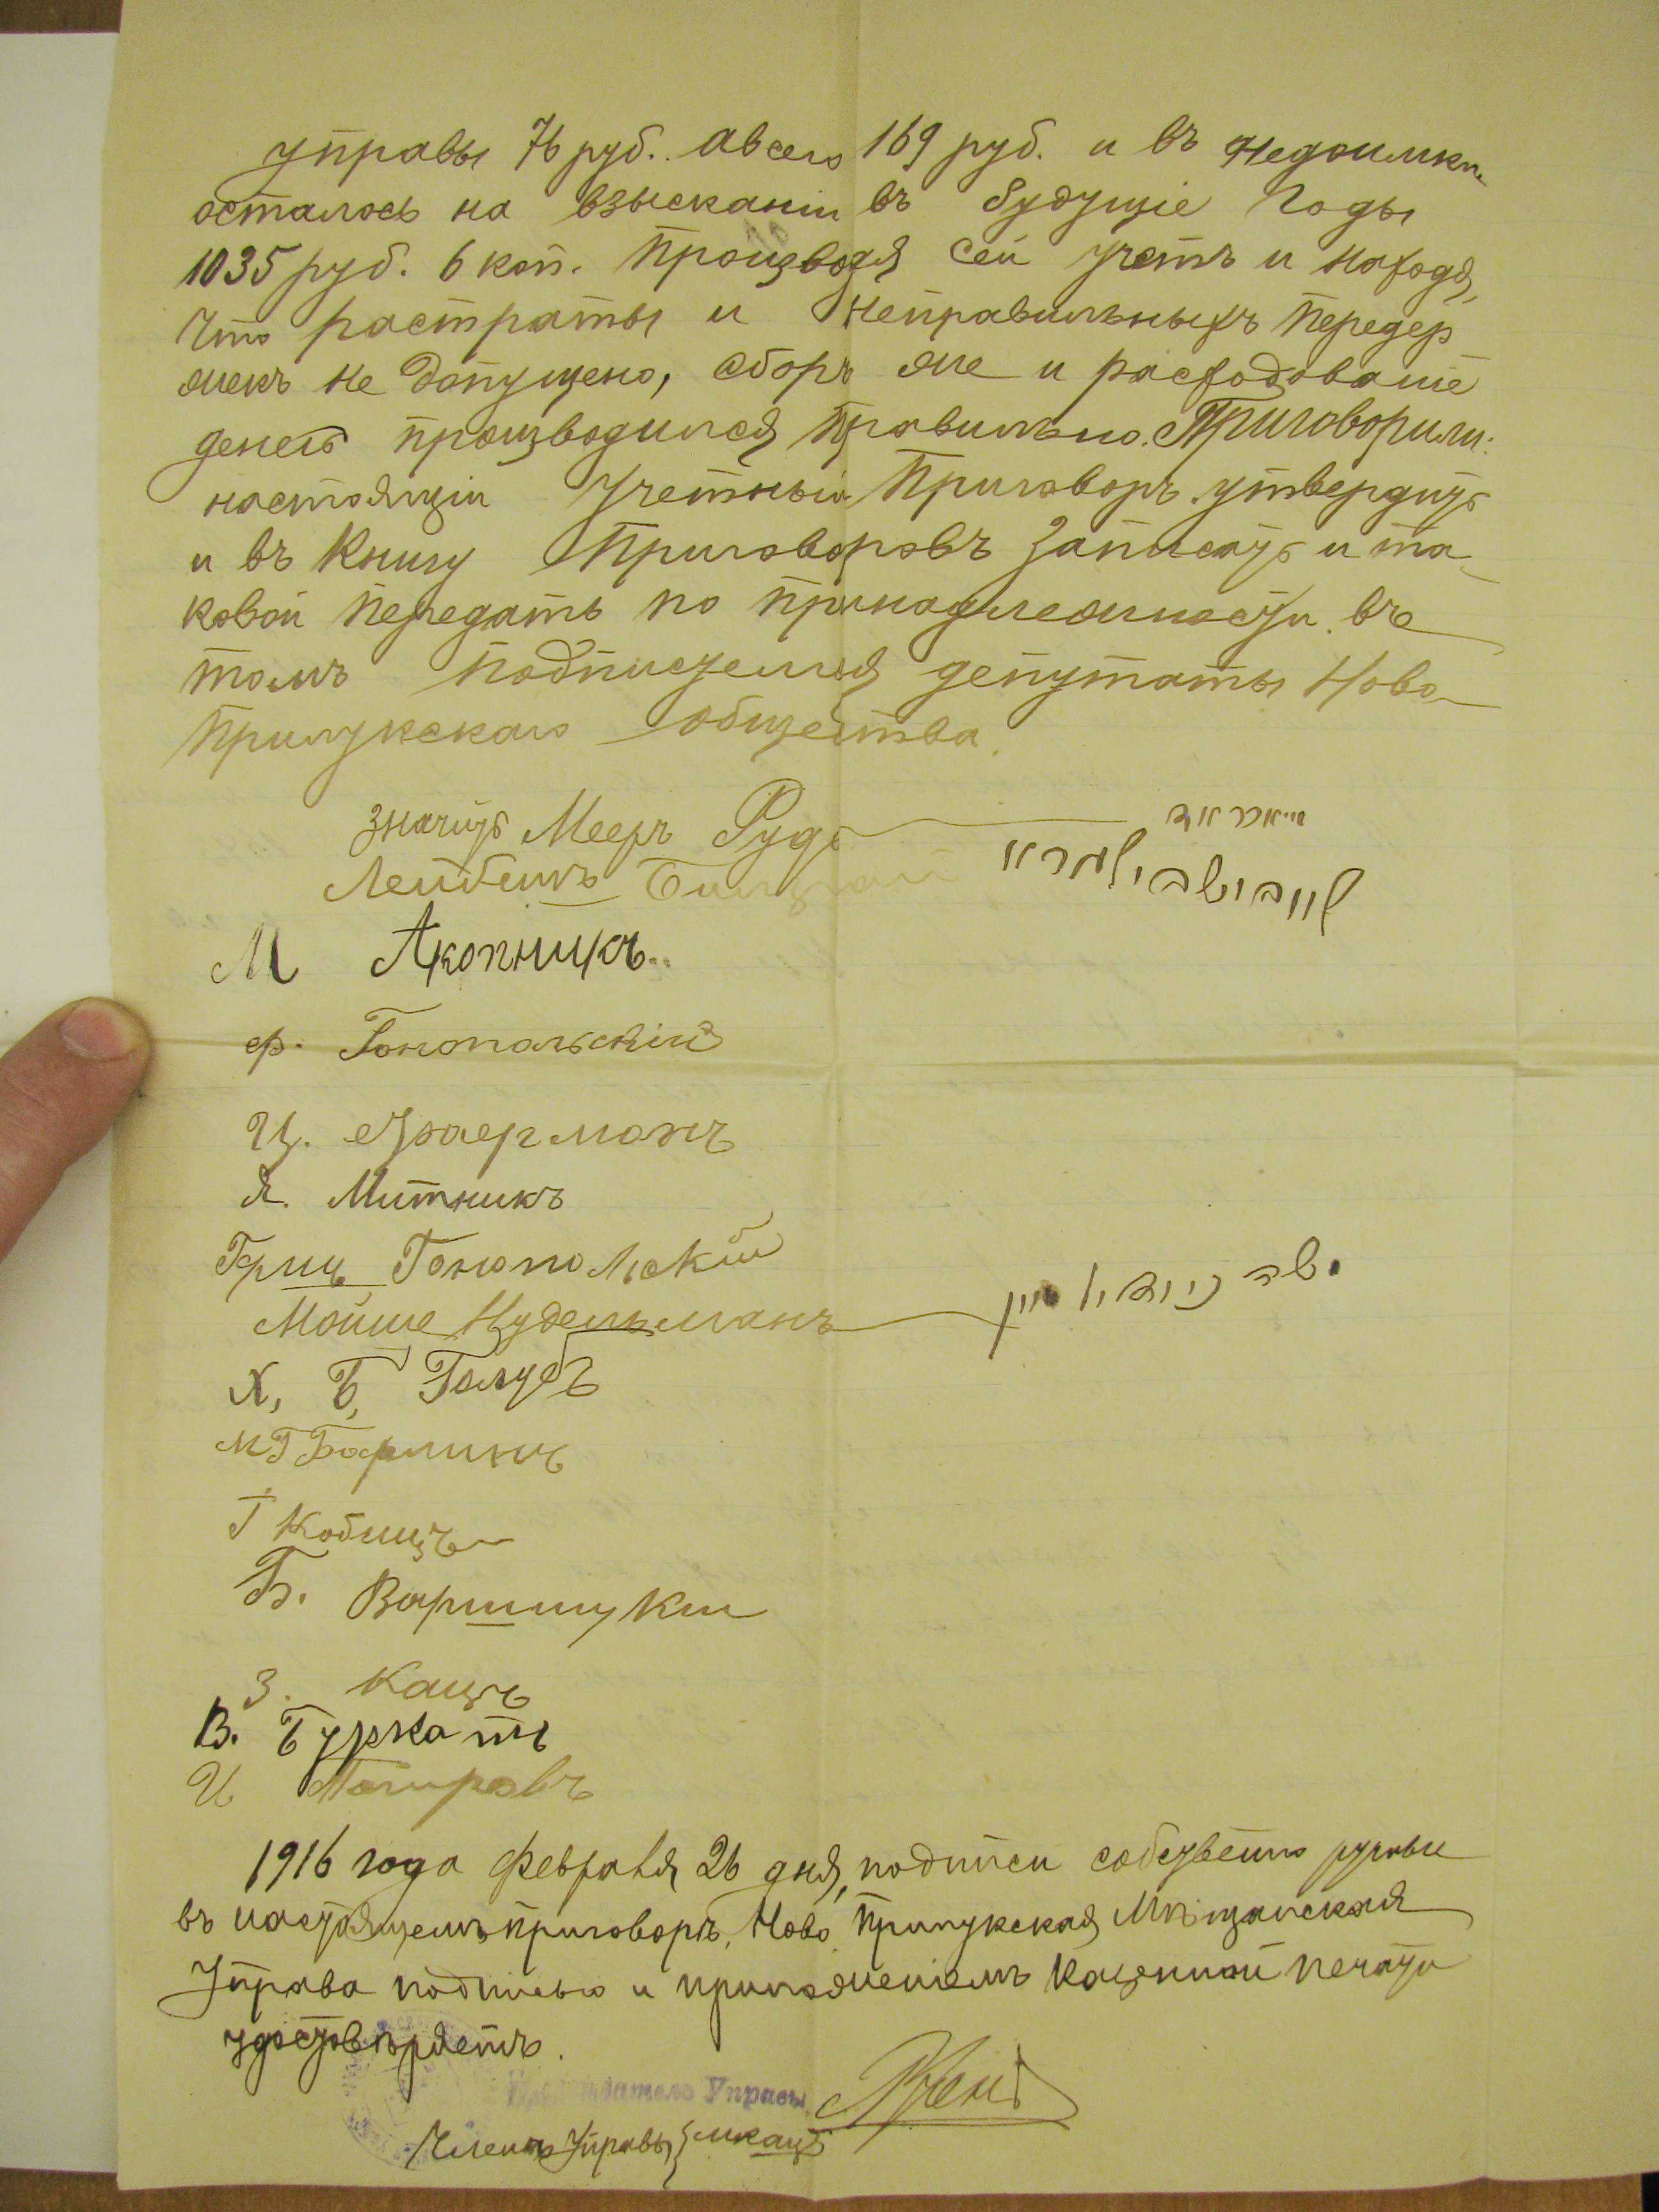 управы 76 руб. а всего 169 руб. и въ недоимки
осталось на взысканiи въ будущiе годы
1035 руб. 6 коп. Производя сей учетъ и находя,
что растраты и неправильныхъ передер
жекъ не допущено, сборъ же и расходованiе
денегъ производился правильно. Приговорили:
настоящiй учетный приговоръ утвердить
и въ книгу приговоровъ записать и та-
ковой передать по принадлежности въ
томъ подписуемся депутаты Ново
прилукскаго общества.
значитъ Мееръ Рудъ
Лейбишъ
М Акопникъ
ф. Гонопольскiй
И. Фраерманъ
Я. Митникъ
Герш Гонопольскiй
Мойше Нудельманъ
Х, Б, Голубъ
М Г
Г Кобицъ
Б.
З. Кацъ
В. Буркатъ
И
1916 года февраля 26 дня, подписи собственно ручные
въ настоящемъ приговоръ, Ново Прилукская Мѣщанская
Управа подписью и приложенiемъ казенной печати
удостовѣряетъ.
Управы
Члены Управы